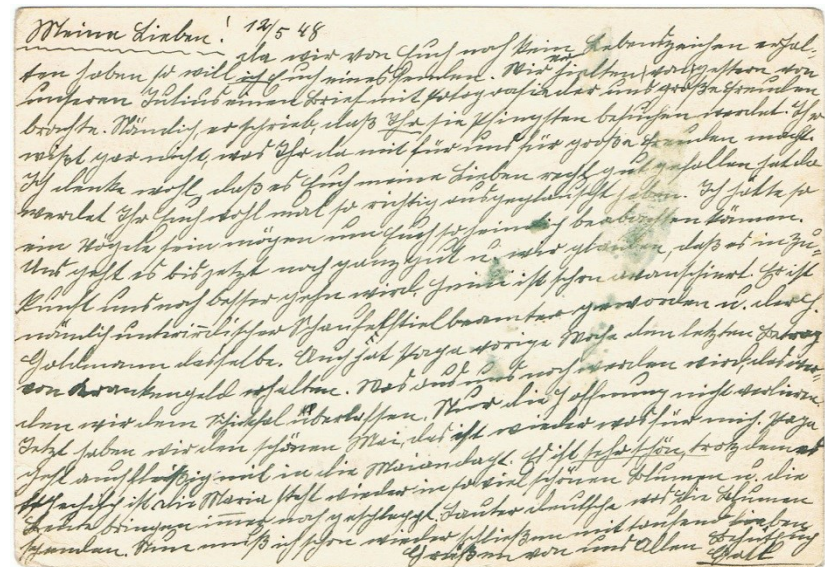 Meine Lieben! 12/5 48
Da wir von Euch noch kein Lebenszeichen erhal-
ten haben so will ich Euch eines senden. Wir erhielten vorgestern von
unseren Julius einen Brief mit Fotografie der uns große Freuden
brachte. Nämlich, er schrieb, daß Ihr sie Pfingsten besuchen werdet. Ihr
wißt gar nicht, was Ihr da mit für uns für große Freuden macht.
Ich denke wohl, daß es Euch meine Lieben recht gut gefallen hat da
werdet Ihr Euch wohl mal so richtig ausgeplauscht haben. Ich hätte so
ein Vögele sein mögen um Euch so heimlich beobachten können.
Uns geht es bis jetzt noch ganz gut u. wir glauben, daß es in Zu-
kunft uns noch besser gehn wird. Heini ist schon avanschiert. Er ist
nämlich unterirdischer Schaufelstielbeamter geworden u. der H.
Goldmann desselbe. Auch hat Papa vorige Woche den letzten Betrag
von Krankengeld erhalten. Was aus uns noch werden wird, das wer-
den wir dem Schicksal überlassen. Nur die Hoffnung nicht verlieren.
Jetzt haben wir den schönen Mai, das ist wieder was für mich. Papa
geht auch fleißig mit in die Maiandacht. Es ist sehr schön, trotzdem es
tschechisch ist, die Maria steht wieder in so viel schönen Blumen u. die
Leute bringen immer noch geschleppt. Lauter deutsche was die Blumen
spenden. Nun muß ich schon wieder schließen mit tausend lieben
Grüßen von uns Allen Behüt Euch
Gott